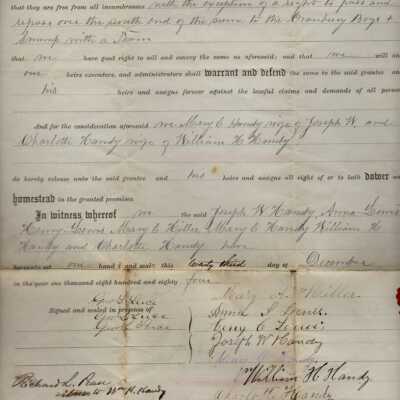 that they are free from all incumbrances with the exception of a right to pass and
repass over the south end of the same to the Cranbury Bogs &
Swamp with a Team
that we have good right to sell and convey the same as aforesaid; and that we will an
our heirs executors, and administrators shall warrant and defend the same to the said grantee and
his heirs and assigns forever against the lawful claims and demands of all person
And for the consideration aforesaid we Mary E Handy wife of Joseph W. and
Charlotte Handy wife of William H Handy
do hereby release unto the said grantee and his heirs and assigns all right of or to both dower an
homestead in the granted premises.
In witness whereof we the said Joseph W Handy, Anna Lewis
Henry Lewis Mary Hiller Mary E Handy William H
Handy and Charlotte Handy have
hereunto set our hand s and seals this twenty third day of December
in the year one thousand eight hundred and eighty four
Signed and sealed in presence of
Mary A Hiller
Anna S Lewis
Joseph W Handy
William H Handy
Charlotte Handy
Richard L. Pease
to Wm H. Handy